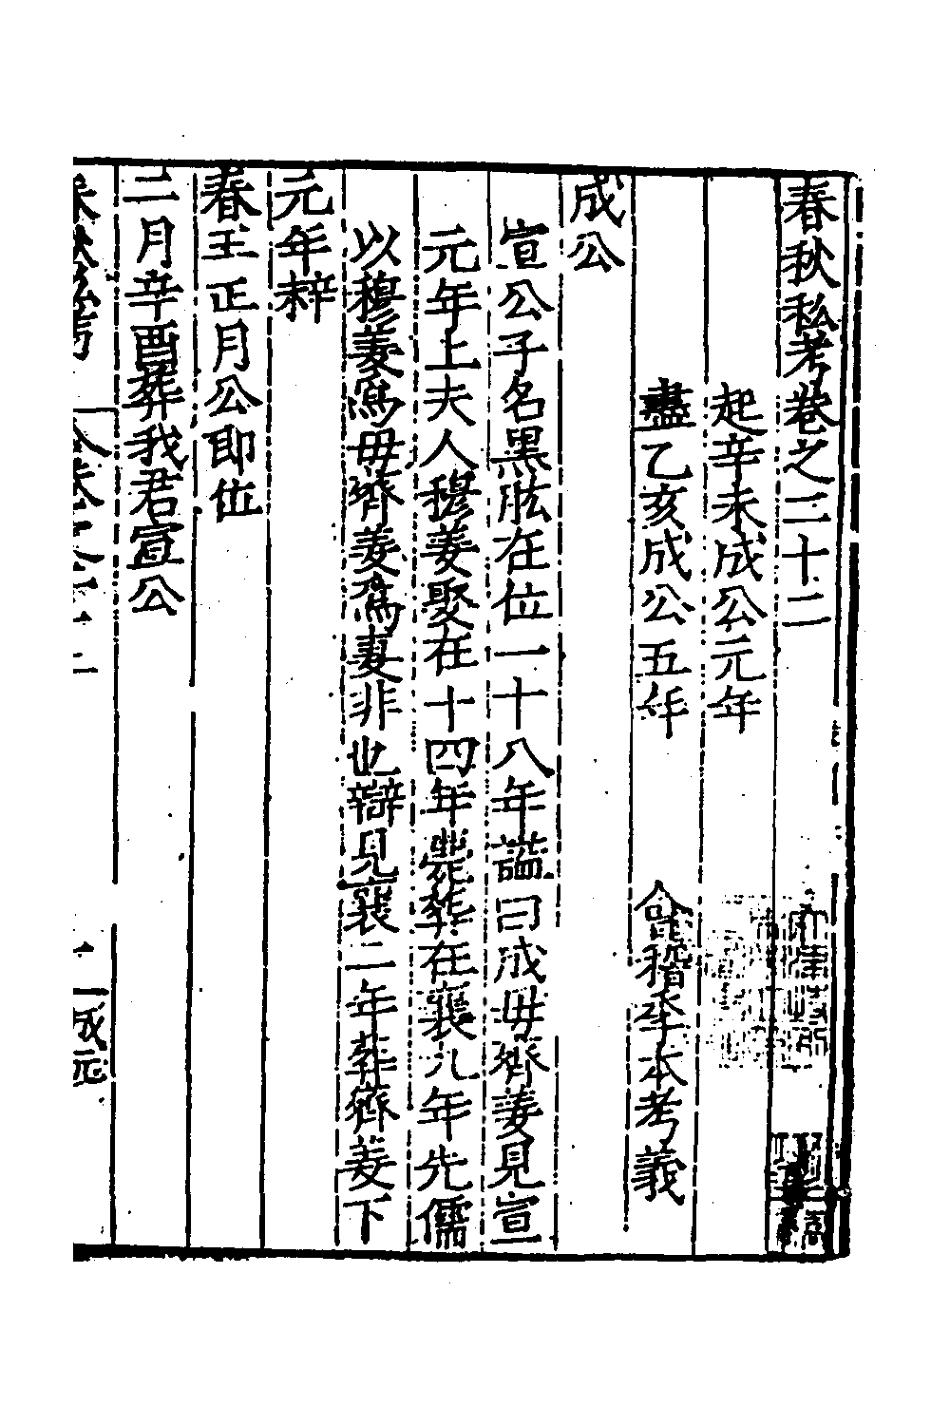 春秋私考卷之二十二
起辛未成公元年
盡乙亥成公五年 會稽季本考義
成公
宣公子名黑肱在位一十八年謚曰成毋齊姜見宣
元年上夫人穆姜娶在十四年薨葬在襄九年先儒
以穆姜爲毋齊姜爲妻非也辯見襄二年葬齊姜下
元年辥
春王正月公即位
二月辛酉葬我君宣公